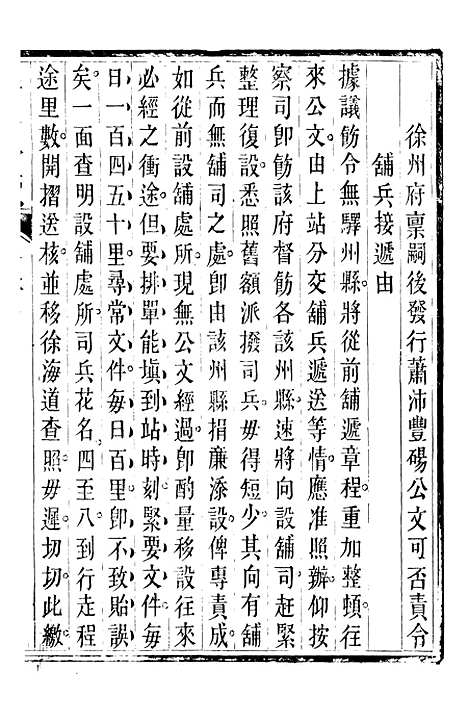 徐州府禀嗣後發行蕭沛豐碭公文可否責令
舖兵接遞由
據議飭令無驛州縣將從前舖遞章程重加整頓往
來公文由上站分交舖兵遞送等情應准照辦仰按
察司卽飭該府督飭各該州縣速將向設舖司赶緊
整理復設悉照舊額派撥司兵毋得短少其向有舖
兵而無舖司之處卽由該州縣捐廉添設俾專責成
如從前設舖處所現無公文經過卽酌量移設往來
必經之衝途但要排單能塡到站時刻緊要文件每
日一百四五十里尋常文件每日百里卽不致貽誤
矣一面查明設舖處所司兵花名四至八到行走程
途里數開摺送核並移徐海道查照毋遲切切此繳